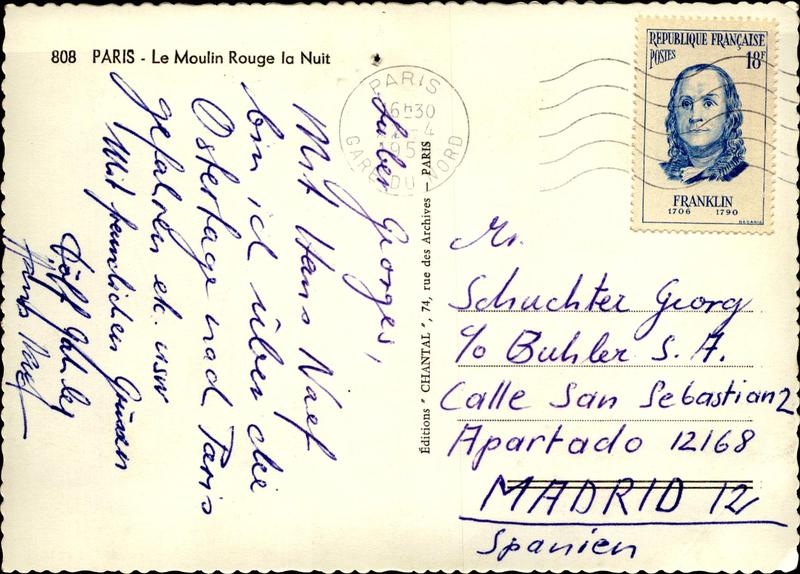 808 PARIS - Le Moulin Rouge la Nuit
Lieber Georges,
Mit Hans Naef
bin ich über die
Ostertage nach Paris
gefahren etc. usw
Mit freundlichen Grüssen
Hans Naef
Éditions "CHANTAL", 74, rue des Archives — PARIS
PARIS
16H30
-4
195
GARE DU NORD
REPUBLIQUE FRANÇAISE
POSTES 18F
FRANKLIN
1706 1790
DECARIS
Mr.
Schuchter Georg
c/o Buhler S.A.
Calle San Sebastian 2
Apartado 12168
MADRID 12
Spanien